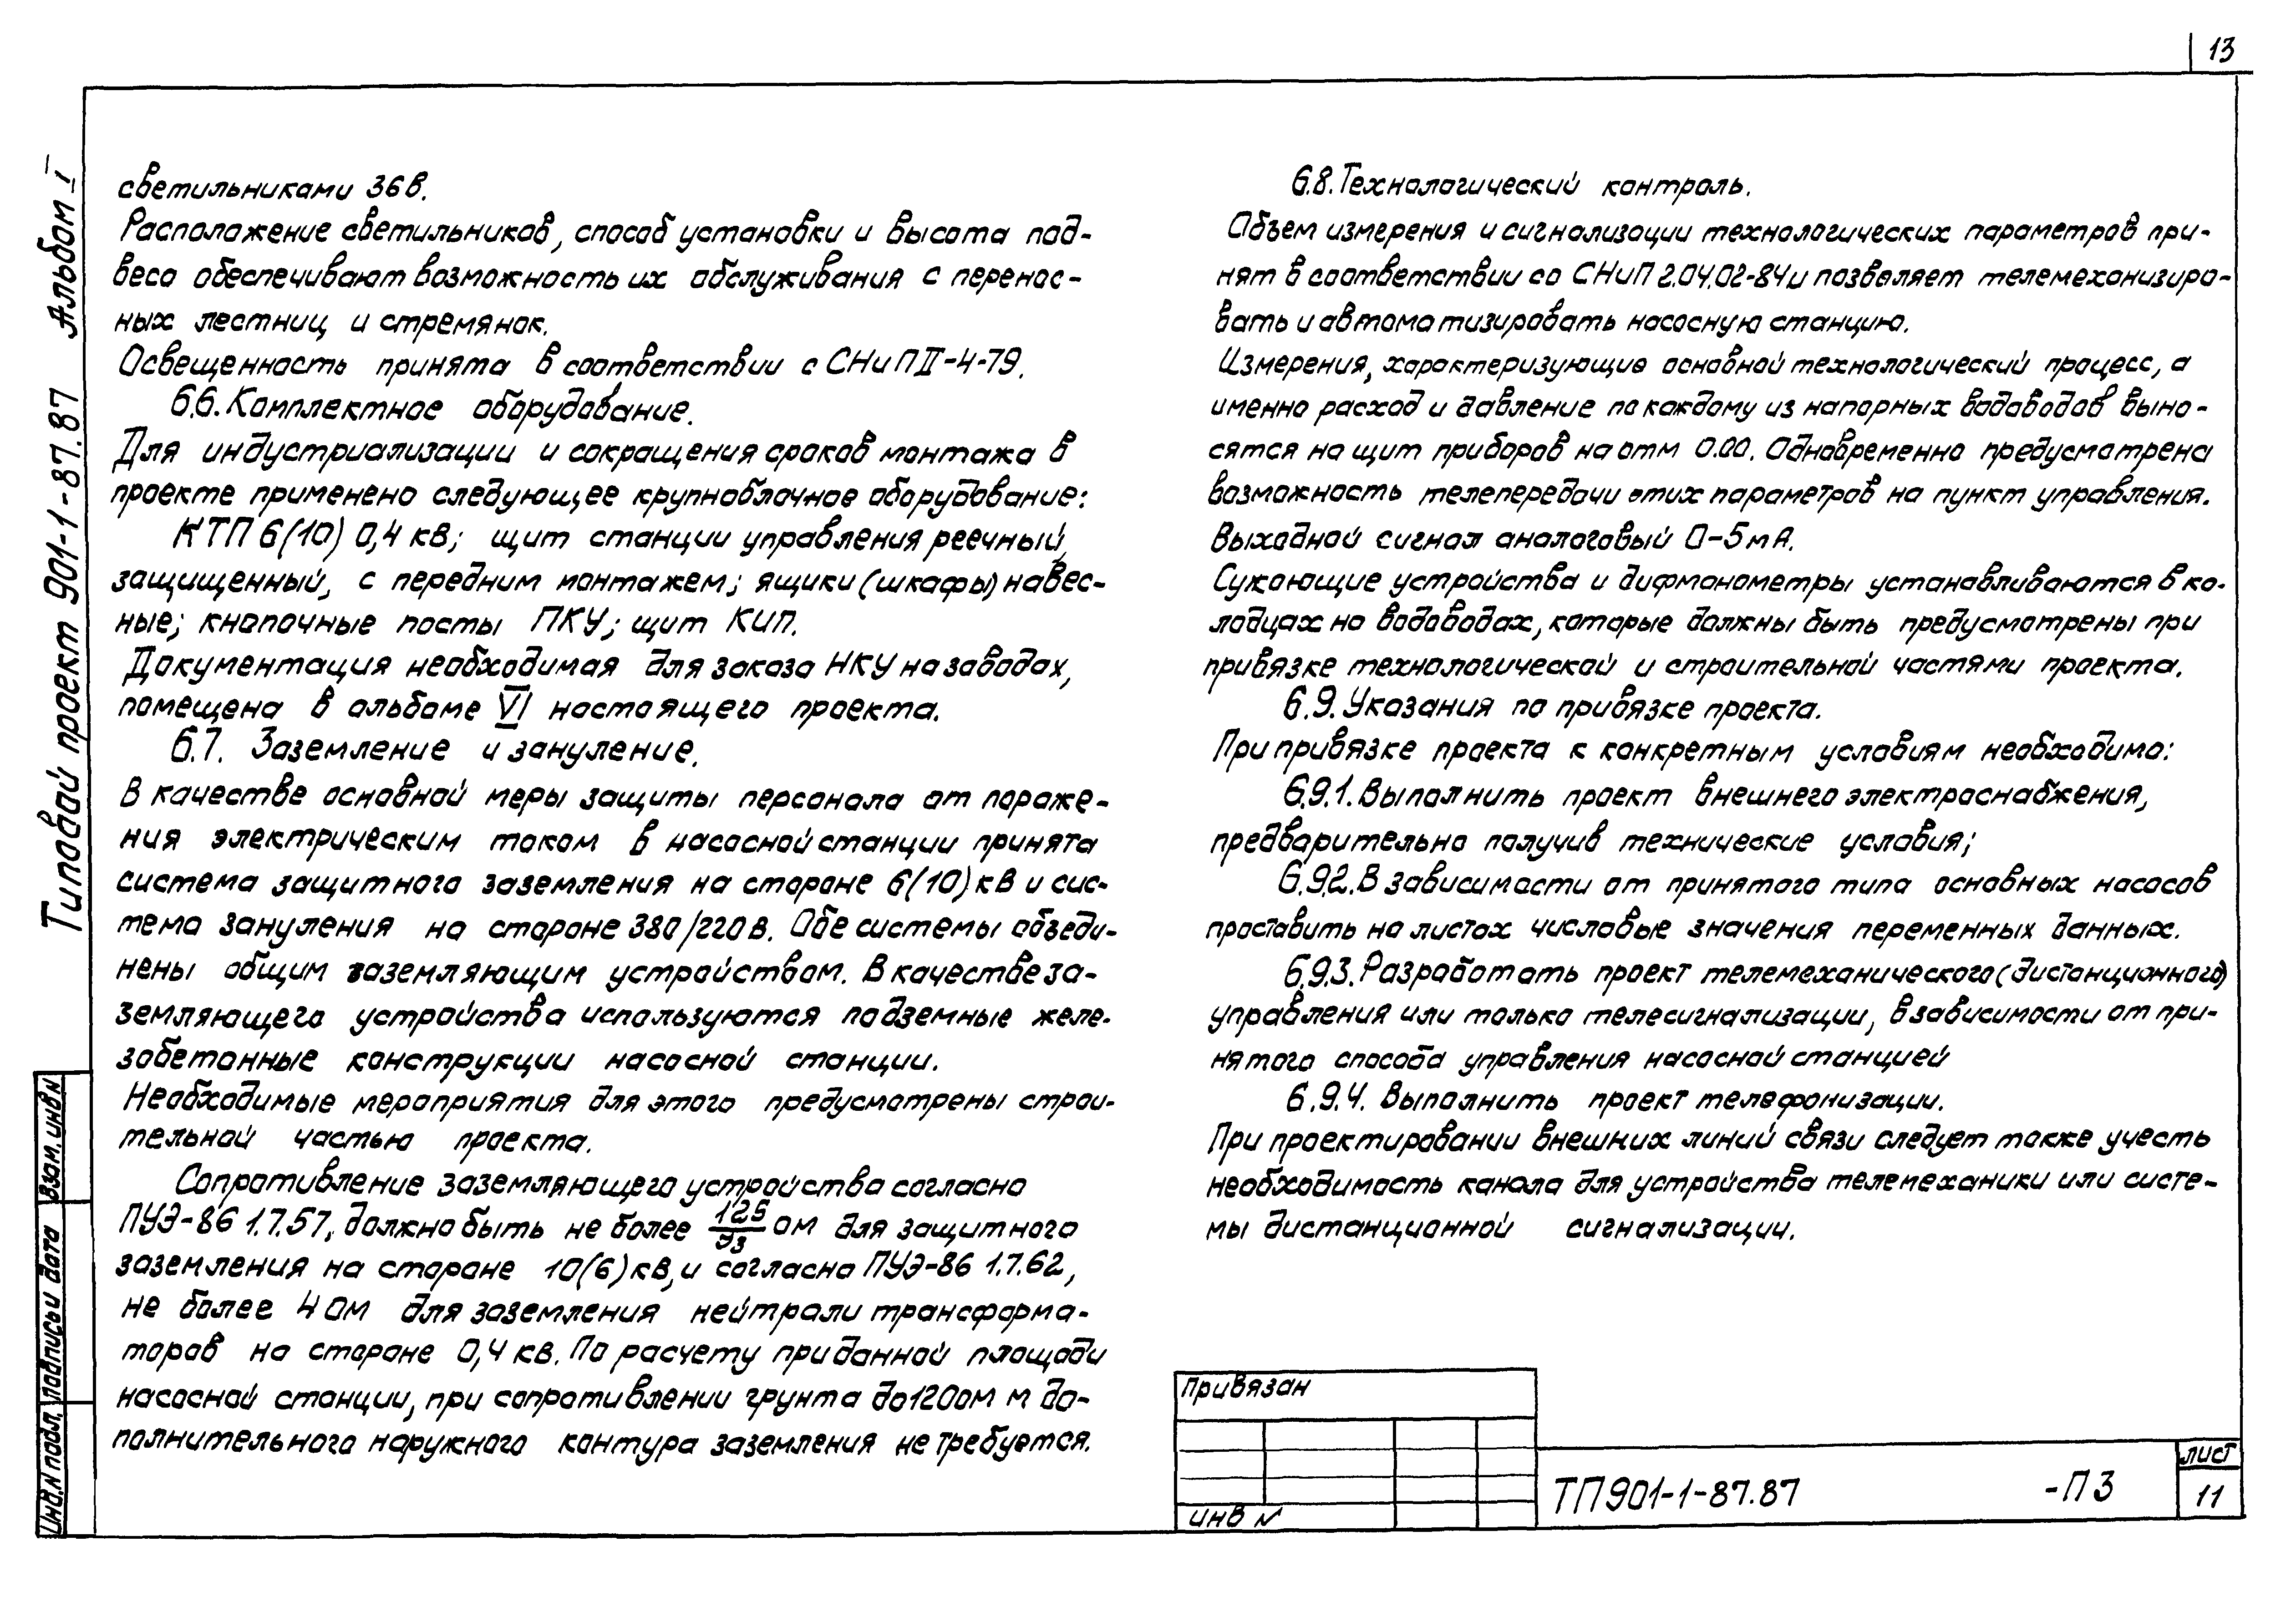 13
Типовой проект 901-1-87.87 Альбом I
светильниками 36в.
Расположение светильников, способ установки и высота под-
веса обеспечивают возможность их обслуживания с перенос-
ных лестниц и стремянок.
Освещенность принята в соответствии с СНиП II-4-79.
6.6. Комплектное оборудование.
Для индустриализации и сокращения сроков монтажа в
проекте применено следующее крупноблочное оборудование:
КТП 6(10) 0,4 кВ; щит станции управления реечный,
защищенный, с передним монтажем; ящики (шкафы) навес-
ные; кнопочные посты ПКУ; щит КИП.
Документация необходимая для заказа НКУ на заводах,
помещена в альбоме VI настоящего проекта.
6.7. Заземление и зануление.
В качестве основной меры защиты персонала от пораже-
ния электрическим током в насосной станции принята
система защитного заземления на стороне 6(10) кВ и сис-
тема зануления на стороне 380/220в. Обе системы объеди-
нены общим заземляющим устройством. В качестве за-
земляющего устройства используются подземные желе-
зобетонные конструкции насосной станции.
Необходимые мероприятия для этого предусмотрены строи-
тельной частью проекта.
Сопротивление заземляющего устройства согласно
ПУЭ-86 1.7.57, должно быть не более 125/Уз ом для защитного
заземления на стороне 10(6) кв, и согласно ПУЭ-86 1.7.62,
не более 4 Ом для заземления нейтрали трансформа-
торов на стороне 0,4 кв. По расчету при данной площади
насосной станции, при сопротивлении грунта до 120ом м до-
полнительного наружного контура заземления не требуется.
6.8. Технологический контроль.
Объем измерения и сигнализации технологических параметров при-
нят в соответствии со СНиП 2.04.02-84 и позволяет телемеханизиро-
вать и автоматизировать насосную станцию.
Измерения, характеризующие основной технологический процесс, а
именно расход и давление по каждому из напорных водоводов выно-
сятся на щит приборов на отм 0.00. Одновременно предусмотрена
возможность телепередачи этих параметров на пункт управления.
Выходной сигнал аналоговый 0-5мА.
Сужающие устройства и дифманометры устанавливаются в ко-
лодцах на водоводах, которые должны быть предусмотрены при
привязке технологической и строительной частями проекта.
6.9. Указания по привязке проекта.
При привязке проекта к конкретным условиям необходимо:
6.9.1. Выполнить проект внешнего электроснабжения,
предварительно получив технические условия;
6.9.2. В зависимости от принятого типа основных насосов
проставить на листах числовые значения переменных данных.
6.9.3. Разработать проект телемеханического (дистанционного)
управления или только телесигнализации, в зависимости от при-
нятого способа управления насосной станцией
6.9.4. Выполнить проект телефонизации.
При проектировании внешних линий связи следует также учесть
необходимость канала для устройства телемеханики или систе-
мы дистанционной сигнализации.
Привязан
инв N
ТП901-1-87.87 -ПЗ
лист
11
Взам. инв N
Подпись и дата
Инв. N подл.